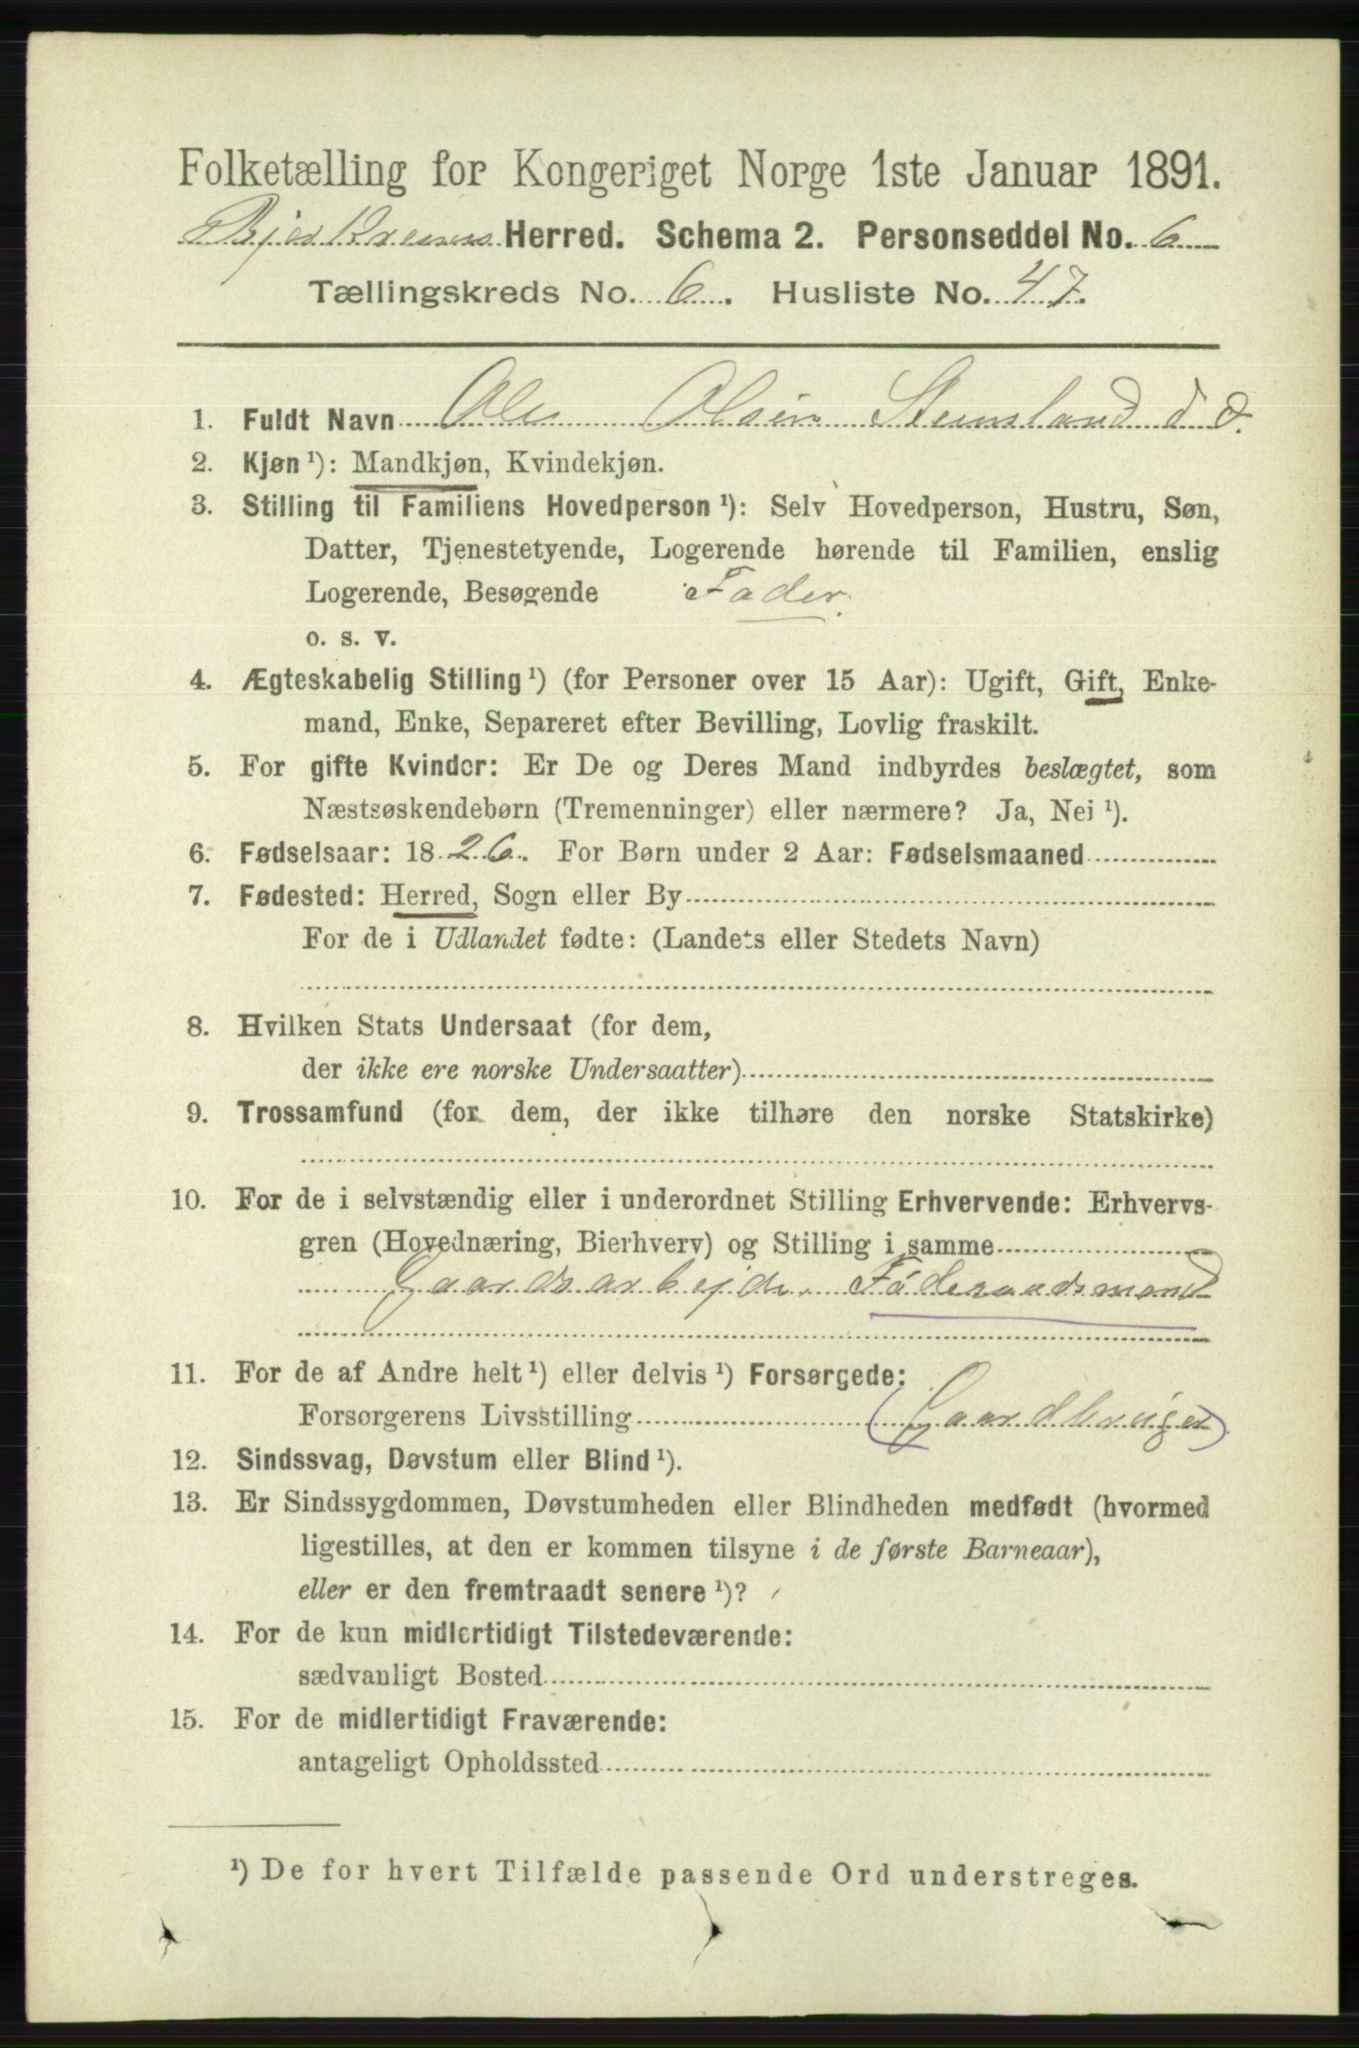 Folketælling for Kongeriget Norge 1ste Januar 1891.
Bjerkreims Herred. Schema 2. Personseddel No. 6
Tællingskreds No. 6. Husliste No. 47.
1. Fuldt Navn Ole Olsen Stensland d. æ.
2. Kjøn ¹): Mandkjøn, Kvindekjøn.
3. Stilling til Familiens Hovedperson ¹): Selv Hovedperson, Hustru, Søn,
Datter, Tjenestetyende, Logerende hørende til Familien, enslig
Logerende, Besøgende Fader.
o. s. v.
4. Ægteskabelig Stilling ¹) (for Personer over 15 Aar): Ugift, Gift, Enke-
mand, Enke, Separeret efter Bevilling, Lovlig fraskilt.
5. For gifte Kvinder: Er De og Deres Mand indbyrdes beslægtet, som
Næstsøskendebørn (Tremenninger) eller nærmere? Ja, Nei ¹).
6. Fødselsaar: 1826. For Børn under 2 Aar: Fødselsmaaned
7. Fødested: Herred, Sogn eller By
For de i Udlandet fødte: (Landets eller Stedets Navn)
8. Hvilken Stats Undersaat (for dem,
der ikke ere norske Undersaatter)
9. Trossamfund (for dem, der ikke tilhøre den norske Statskirke)
10. For de i selvstændig eller i underordnet Stilling Erhvervende: Erhvervs-
gren (Hovednæring, Bierhverv) og Stilling i samme
Gaardsarbejde. Föderaadsmand
11. For de af Andre helt ¹) eller delvis ¹) Forsørgede:
Forsørgerens Livsstilling (Gaardbruger)
12. Sindssvag, Døvstum eller Blind ¹).
13. Er Sindssygdommen, Døvstumheden eller Blindheden medfødt (hvormed
ligestilles, at den er kommen tilsyne i de første Barneaar),
eller er den fremtraadt senere ¹)?
14. For de kun midlertidigt Tilstedeværende:
sædvanligt Bosted
15. For de midlertidigt Fraværende:
antageligt Opholdssted
¹) De for hvert Tilfælde passende Ord understreges.